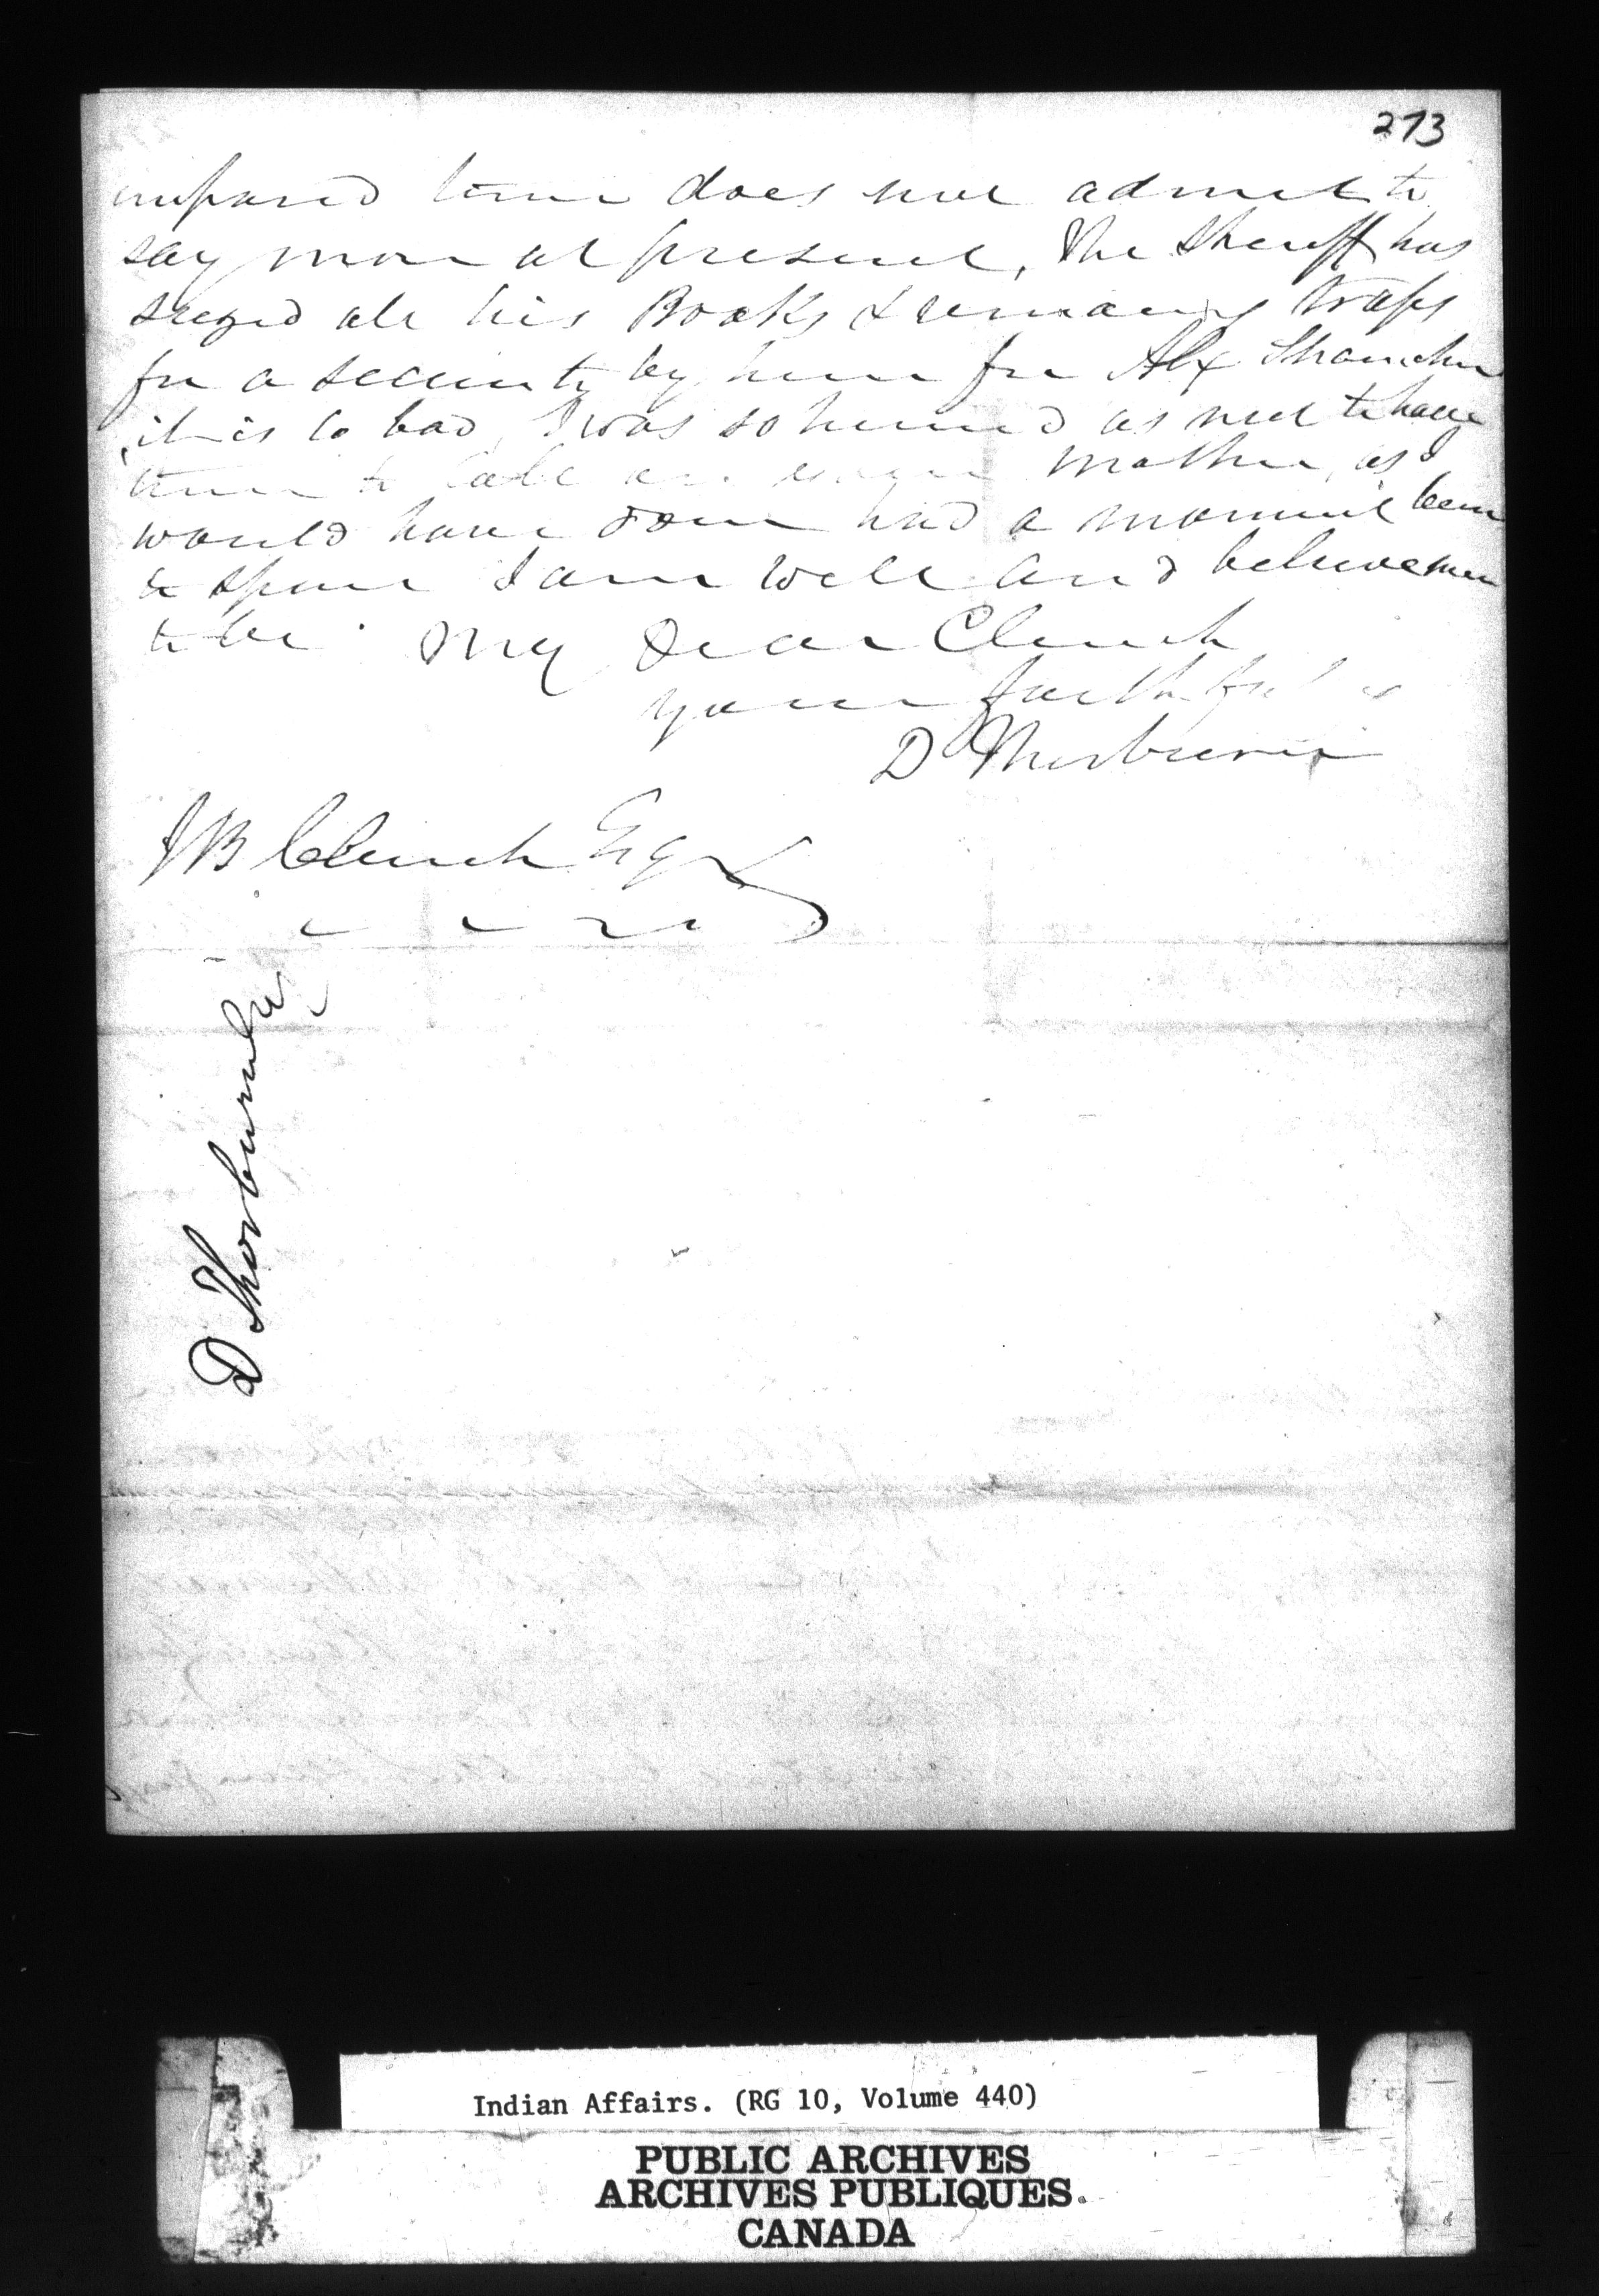 273
time does not admit to
say more at present, the Sheriff has
seized all his Books & remaining traps
for a security by him for Alx
it is to bad, I was so hurried as not to have
time to call on mother, as I
would have done had a moment been
to spare I am well and believe me
to be My Dear Clench
yours faithfully
D Thorburn
JB Clench Esqr
D Thorburn
Indian Affairs. (RG 10, Volume 440)
PUBLIC ARCHIVES
ARCHIVES PUBLIQUES
CANADA